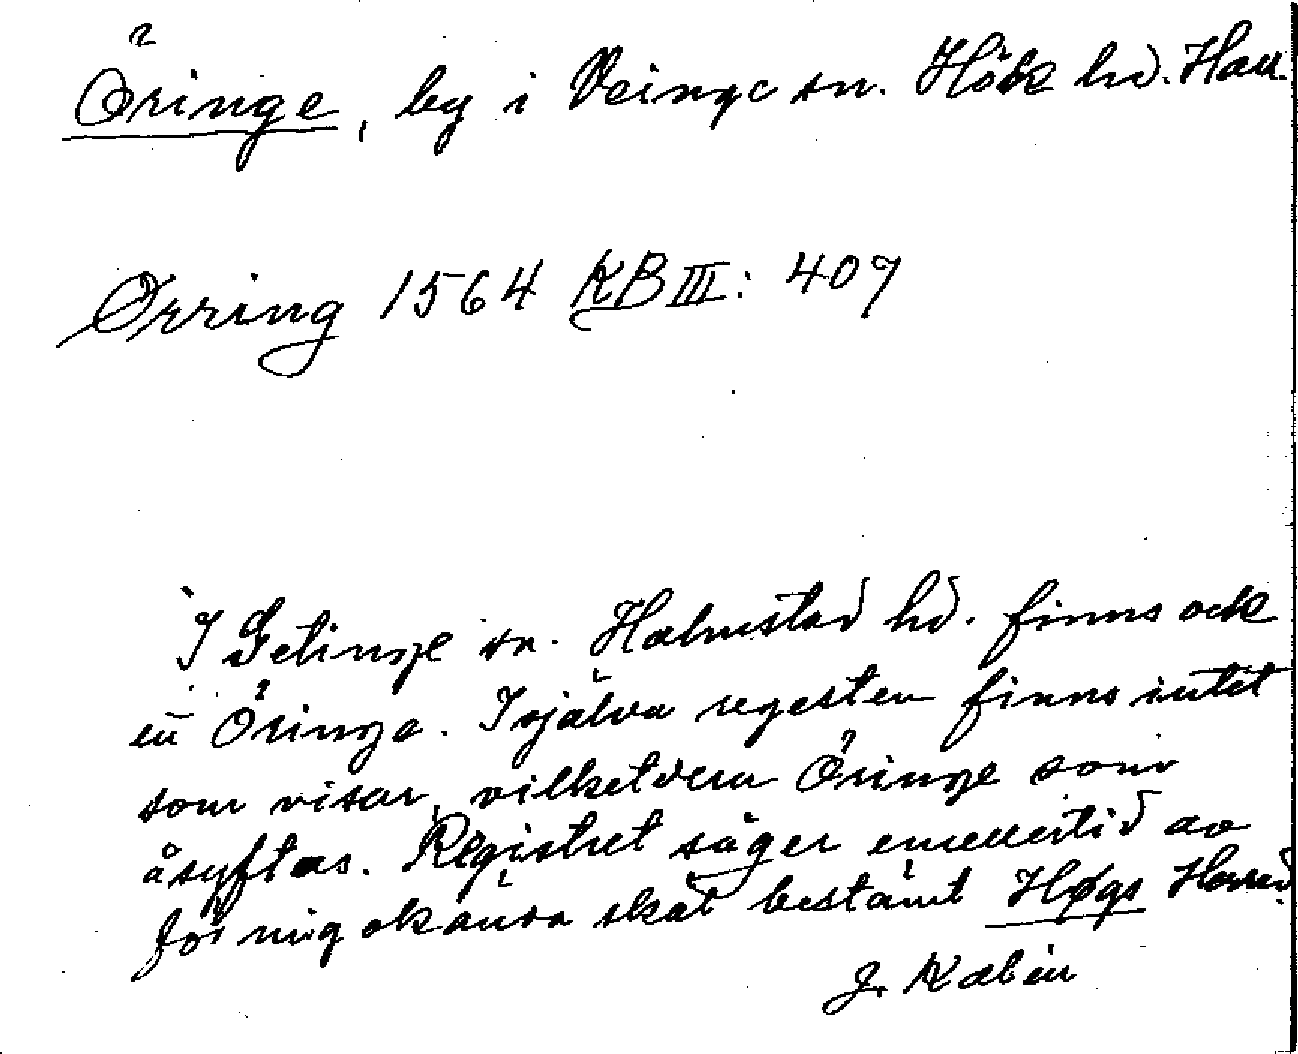 Öringe, by i Veinge sn. Höks hd. Hall.
Ørring 1564 KB III: 409
I Getinge sn. Halmstad hd. finns ock
en Öringe. I själva regesten finns intet
som visar, vilketdera Öringe som
åsyftas. Registret säger emellertid av
för mig okända skäl bestämt Høgs Herred.
J. Kalén